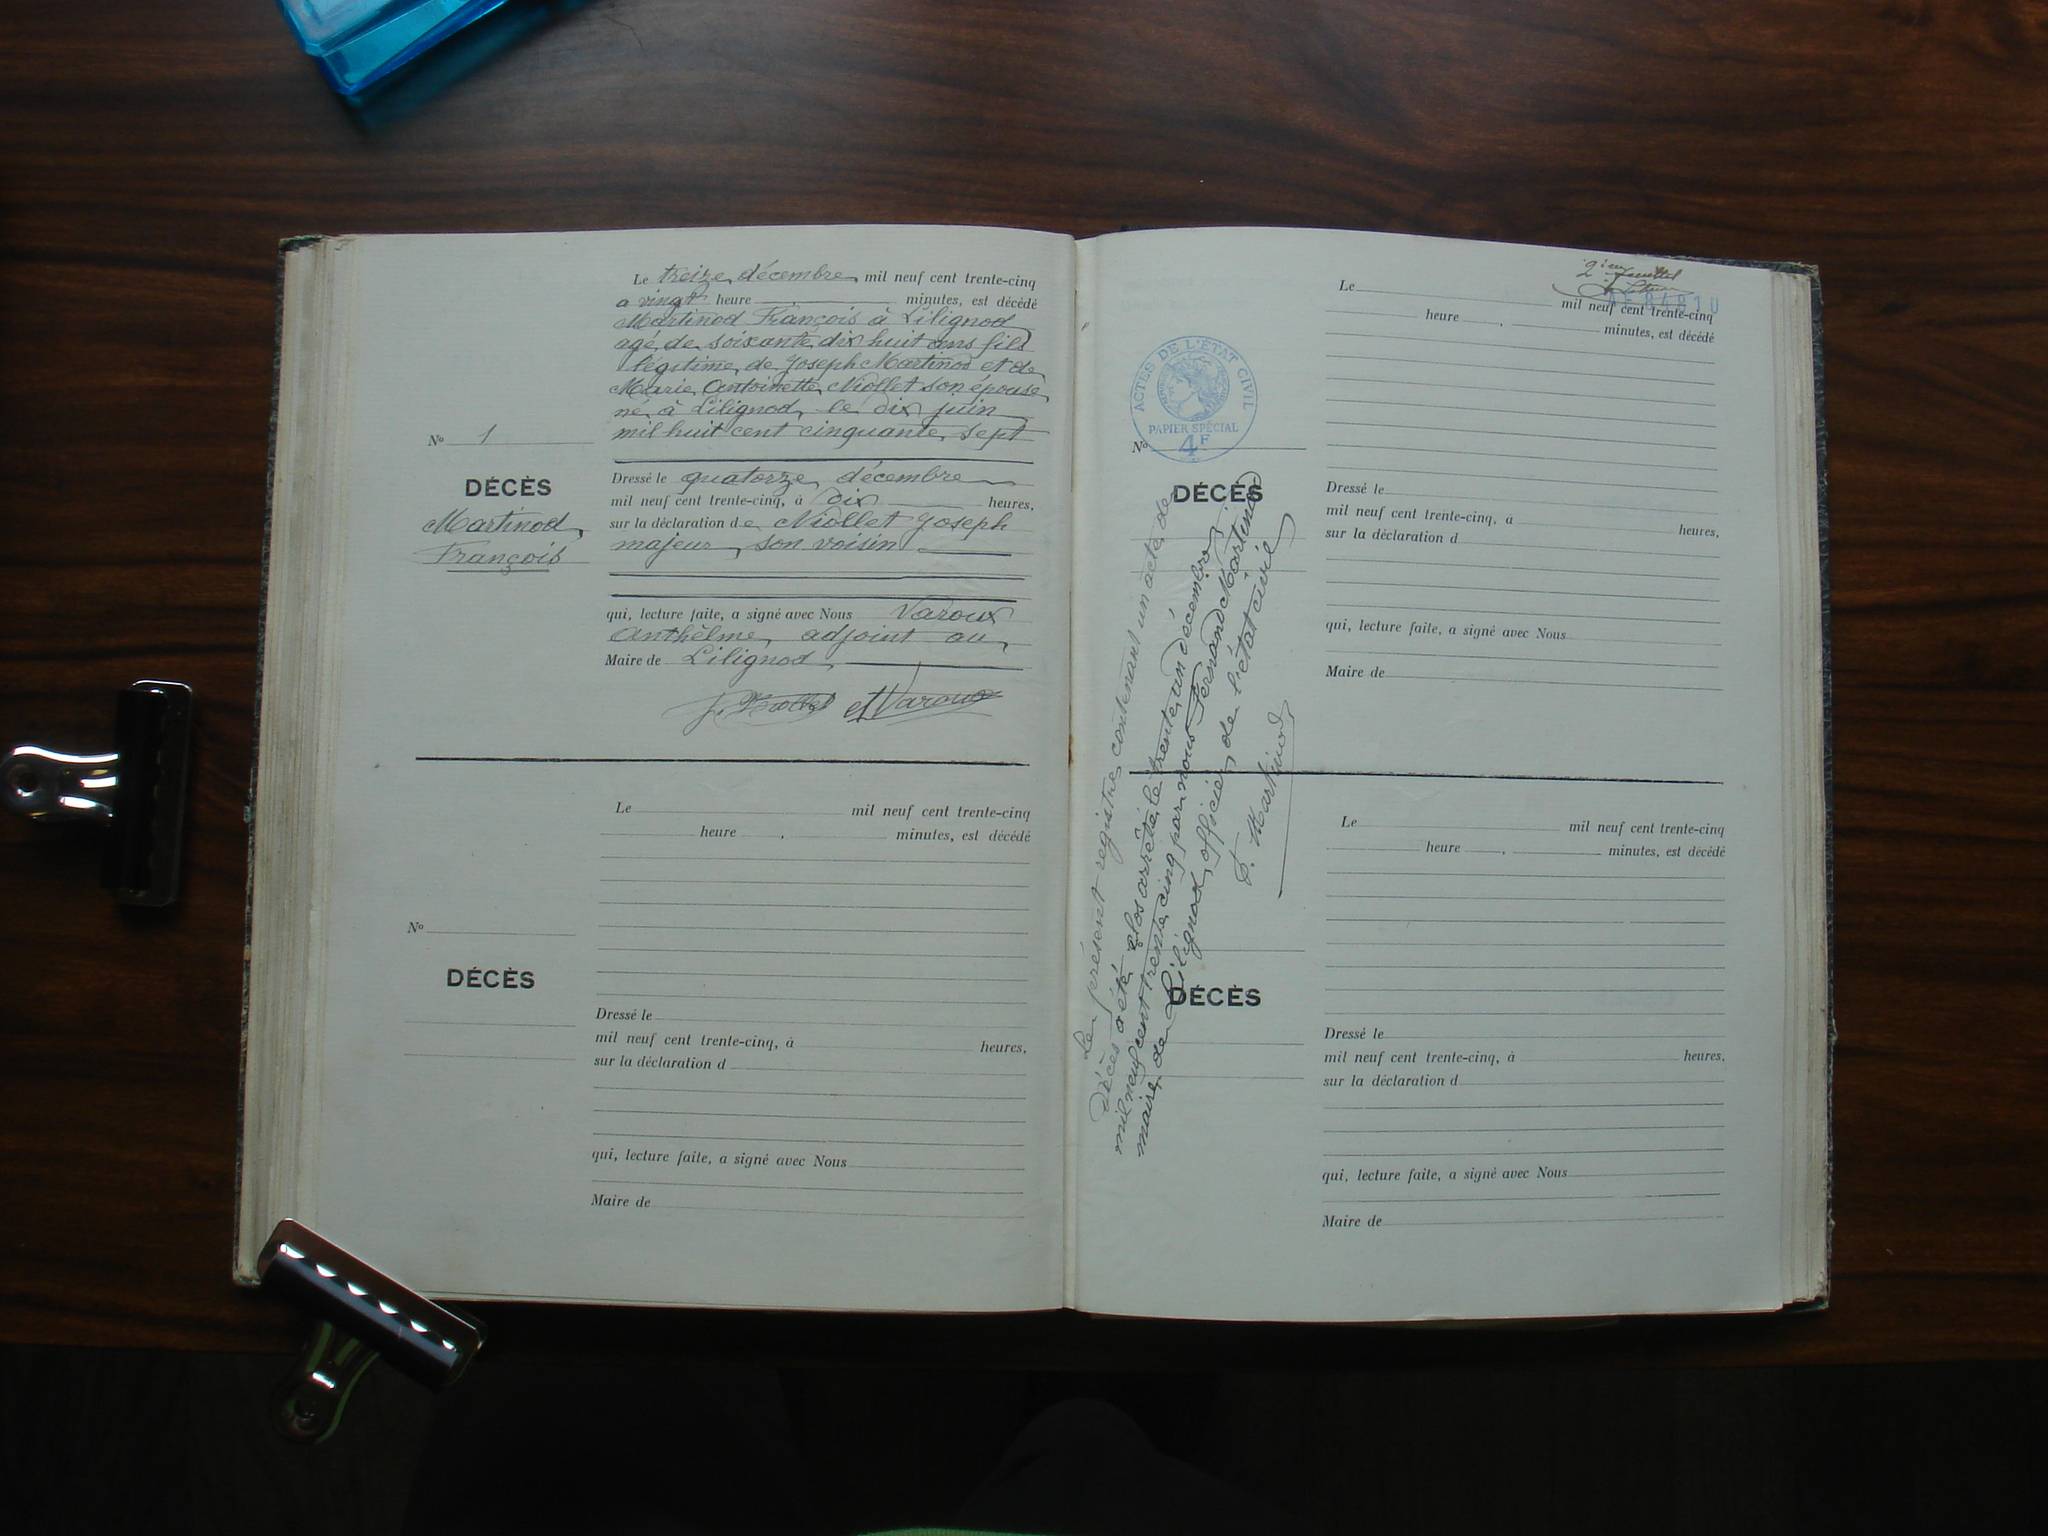 Le treize décembre mil neuf cent trente-cinq
a vingt heure minutes, est décédé
Martinod François à Lilignod
agé de soixante dix huit ans fils
légitime de Joseph Martinod et de
Marie Antoinette Niollet son épouse
né à Lilignod le dix juin
mil huit cent cinquante sept
No 1
DÉCÈS
Martinod
François
Dressé le quatorze décembre
mil neuf cent trente-cinq, à dix heures,
sur la déclaration de Niollet Joseph
majeur, son voisin
qui, lecture faite, a signé avec Nous Varoux
Anthelme, adjoint au
Maire de Lilignod
J. Niollet Varoux
Le mil neuf cent trente-cinq
heure , minutes, est décédé
No
DÉCÈS
Dressé le
mil neuf cent trente-cinq, à heures,
sur la déclaration d
qui, lecture faite, a signé avec Nous
Maire de
2ième feuillet
84810
Le mil neuf cent trente-cinq
heure , minutes, est décédé
ACTES DE L'ÉTAT CIVIL
PAPIER SPÉCIAL
4F
No
DÉCÈS
Dressé le
mil neuf cent trente-cinq, à heures,
sur la déclaration d
qui, lecture faite, a signé avec Nous
Maire de
Le présent registre contenant un acte de
décès a été clos arrêté le trente un décembre
mil neuf cent trente cinq par nous Fernand Martinod
maire de Lilignod, officier de l'état civil
F. Martinod
Le mil neuf cent trente-cinq
heure , minutes, est décédé
DÉCÈS
Dressé le
mil neuf cent trente-cinq, à heures,
sur la déclaration d
qui, lecture faite, a signé avec Nous
Maire de